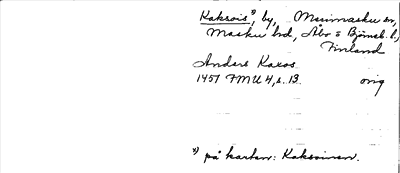 Kaksois*), by, Merimasku sn,
Masku hd, Åbo o Björneb. l.,
Finland
Anders Kaxos
1451 FMU 4, s. 13. orig
*) på kartan: Kaksoinen.